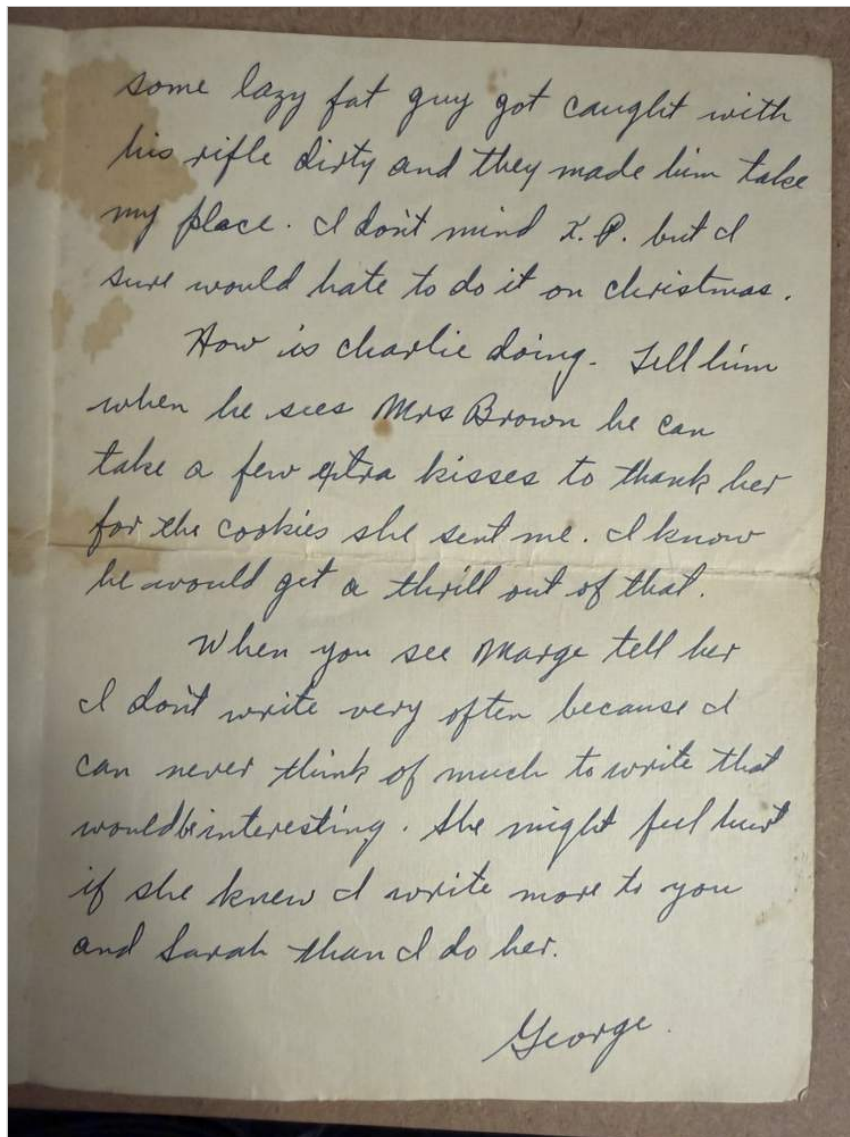 some lazy fat guy got caught with
his rifle dirty and they made him take
my place. I don't mind K.P. but I
sure would hate to do it on christmas.
How is charlie doing. Tell him
when he sees Mrs Brown he can
take a few extra kisses to thank her
for the cookies she sent me. I know
he would get a thrill out of that.
When you see Marge tell her
I don't write very often because I
can never think of much to write that
would be interesting. She might feel hurt
if she knew I write more to you
and Sarah than I do her.
George.